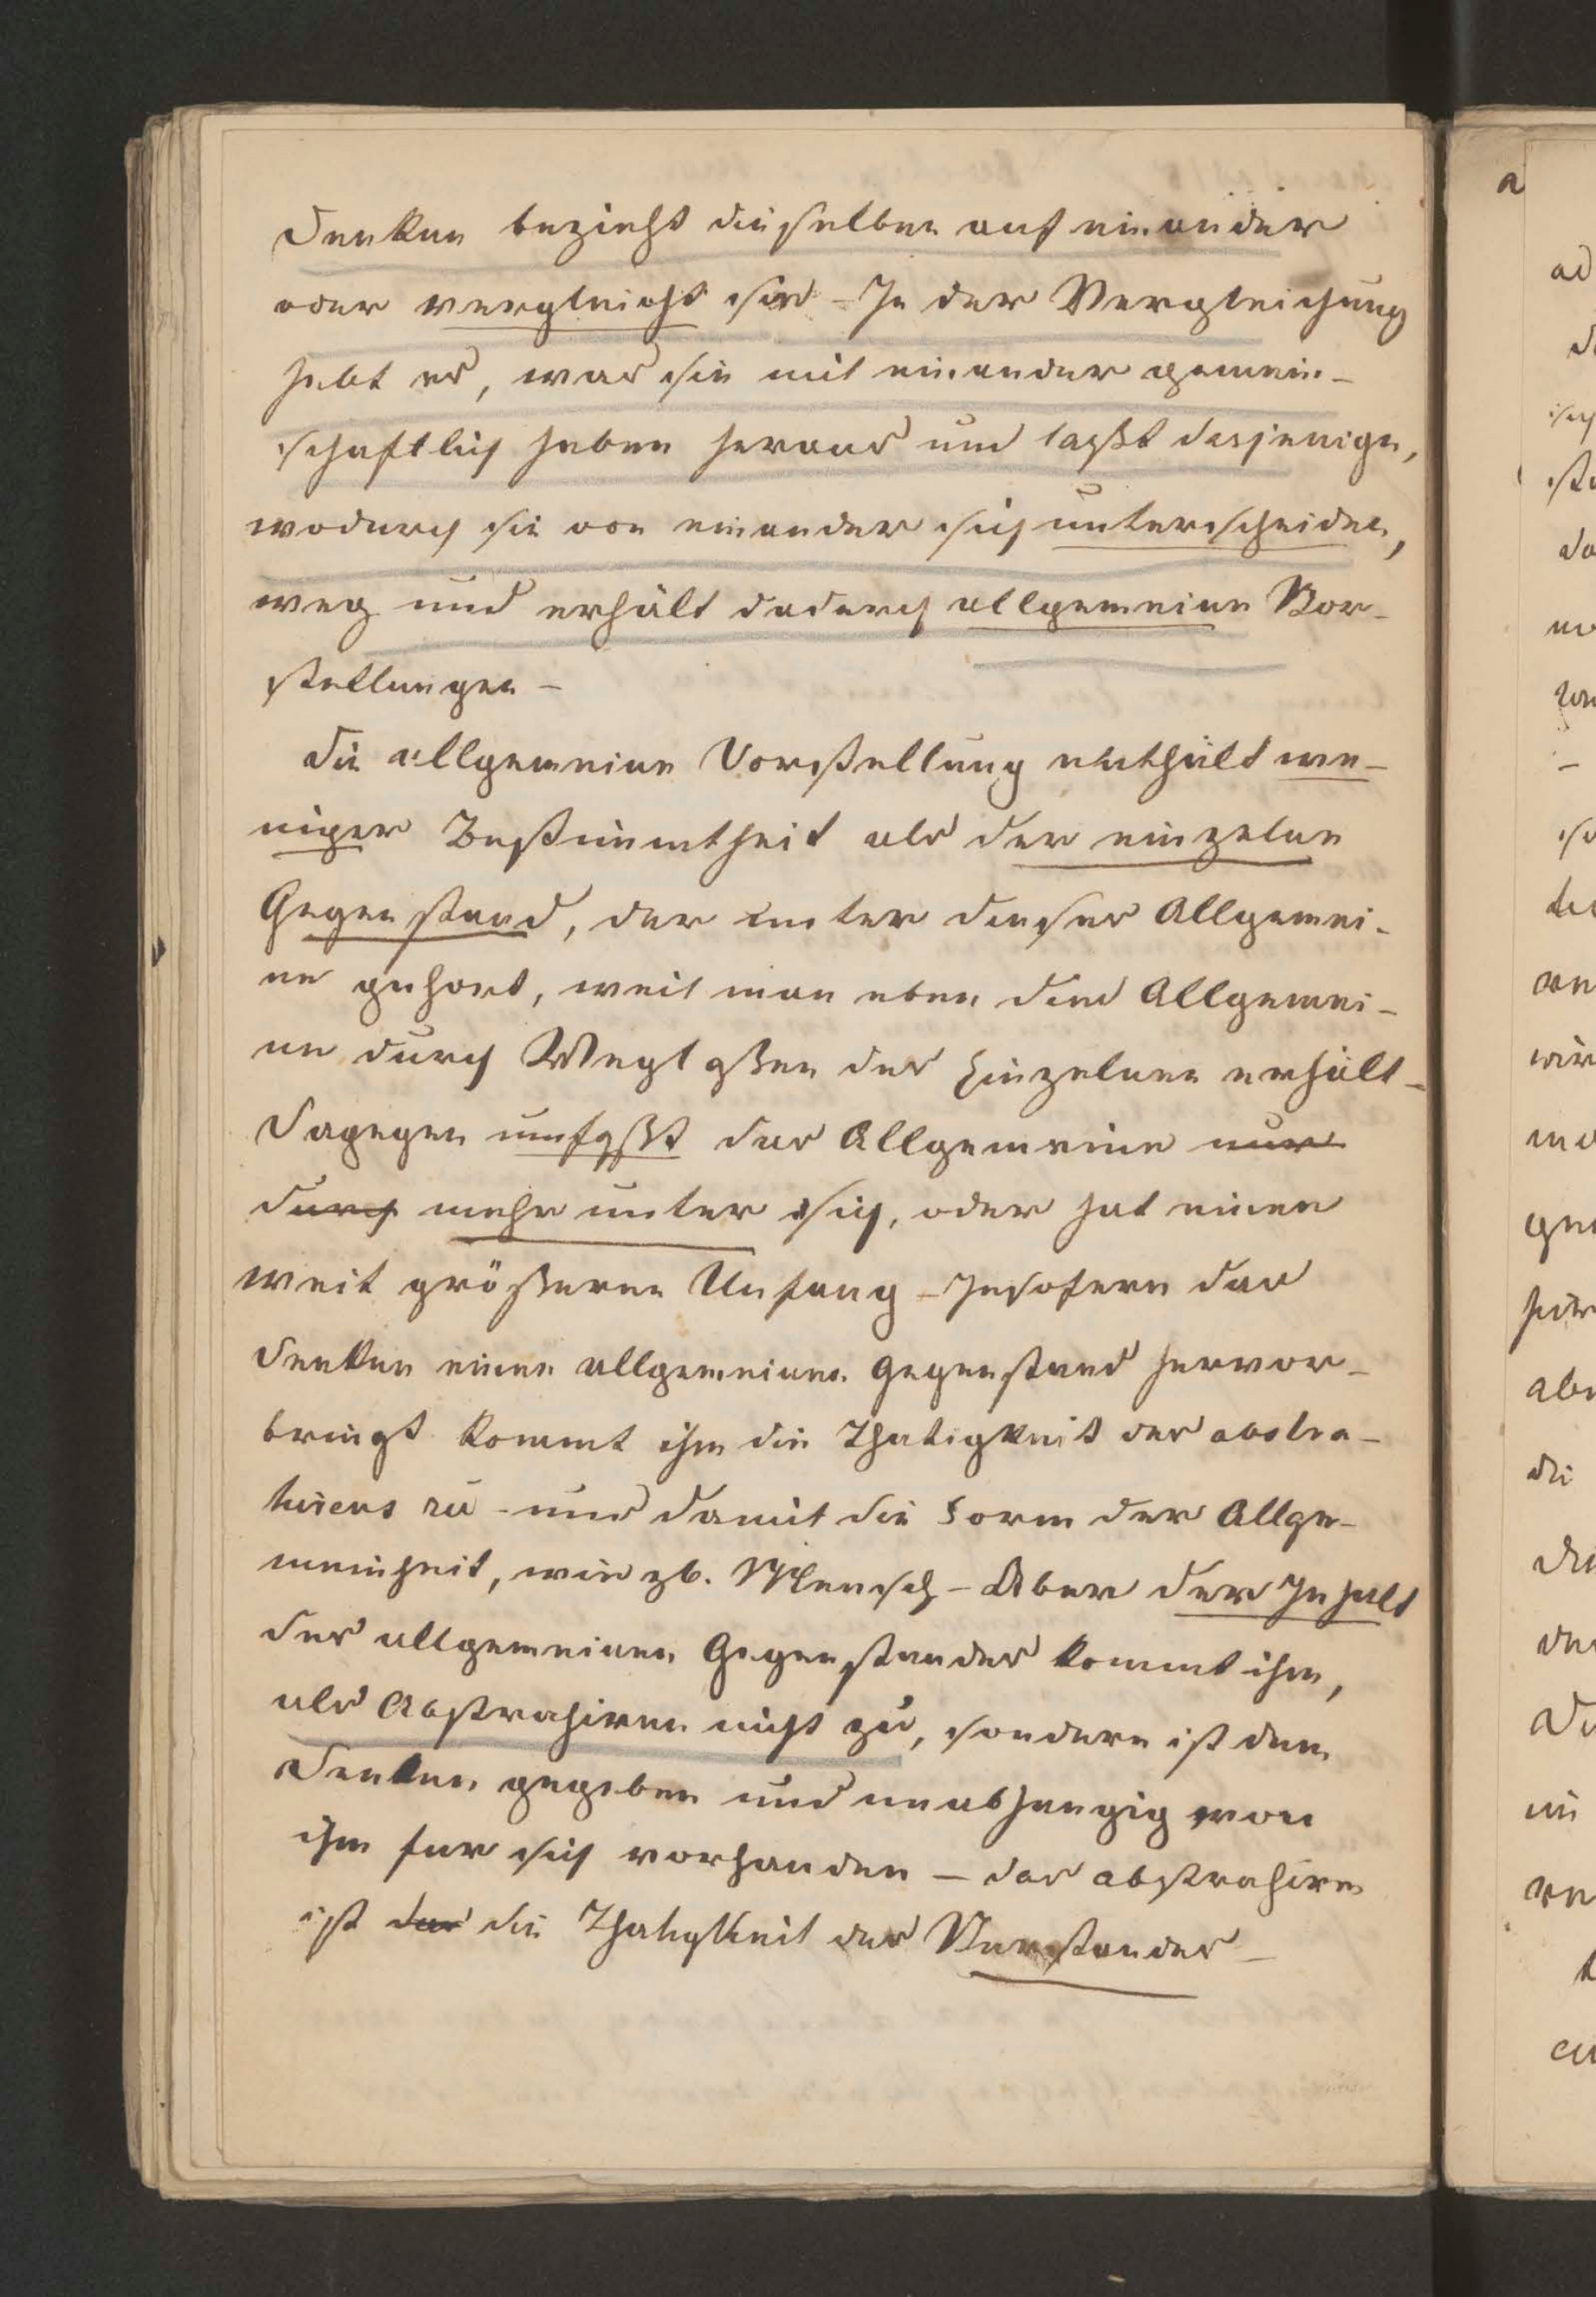 Denken bezieht dieselben auf einander
oder vergleicht sie – In der Vergleichung
hebt es, was sie mit einander gemein-
schaftlich haben heraus und laßt dasjenige,
wodurch sie von einander sich unterscheiden,
weg und erhält dadurch allgemeine Vor-
stellungen –
Die allgemeine Vorstellung enthält we-
niger Bestimmtheit als der einzelne
Gegenstand, der unter dieses Allgemei-
ne gehort, weil man eben dies Allgemei-
ne durch Weglaßen des Einzelnen erhält –
Dagegen umfaßt das Allgemeine nur
durch mehr unter sich, oder hat einen
weit größeren Umfang – Insofern das
Denken einen allgemeinen Gegenstand hervor-
bringt kommt ihm die Thatigkeit des abstra-
hirens zu – und damit die Form der Allge-
meinheit, wie zb. Mensch – Aber der Inhalt
des allgemeinen Gegenstandes kommt ihm,
als Abstrahiren nicht zu, sondern ist dem
Denken gegeben und unabhangig von
ihm fur sich vorhanden – das abstrahiren
ist das die Thatigkeit des Verstandes –